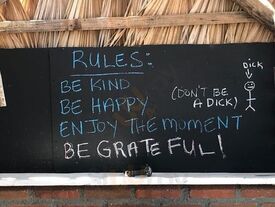 RULES:
BE KIND
BE HAPPY
(DON'T BE
A DICK)
DICK
ENJOY THE MOMENT
BE GRATEFUL!